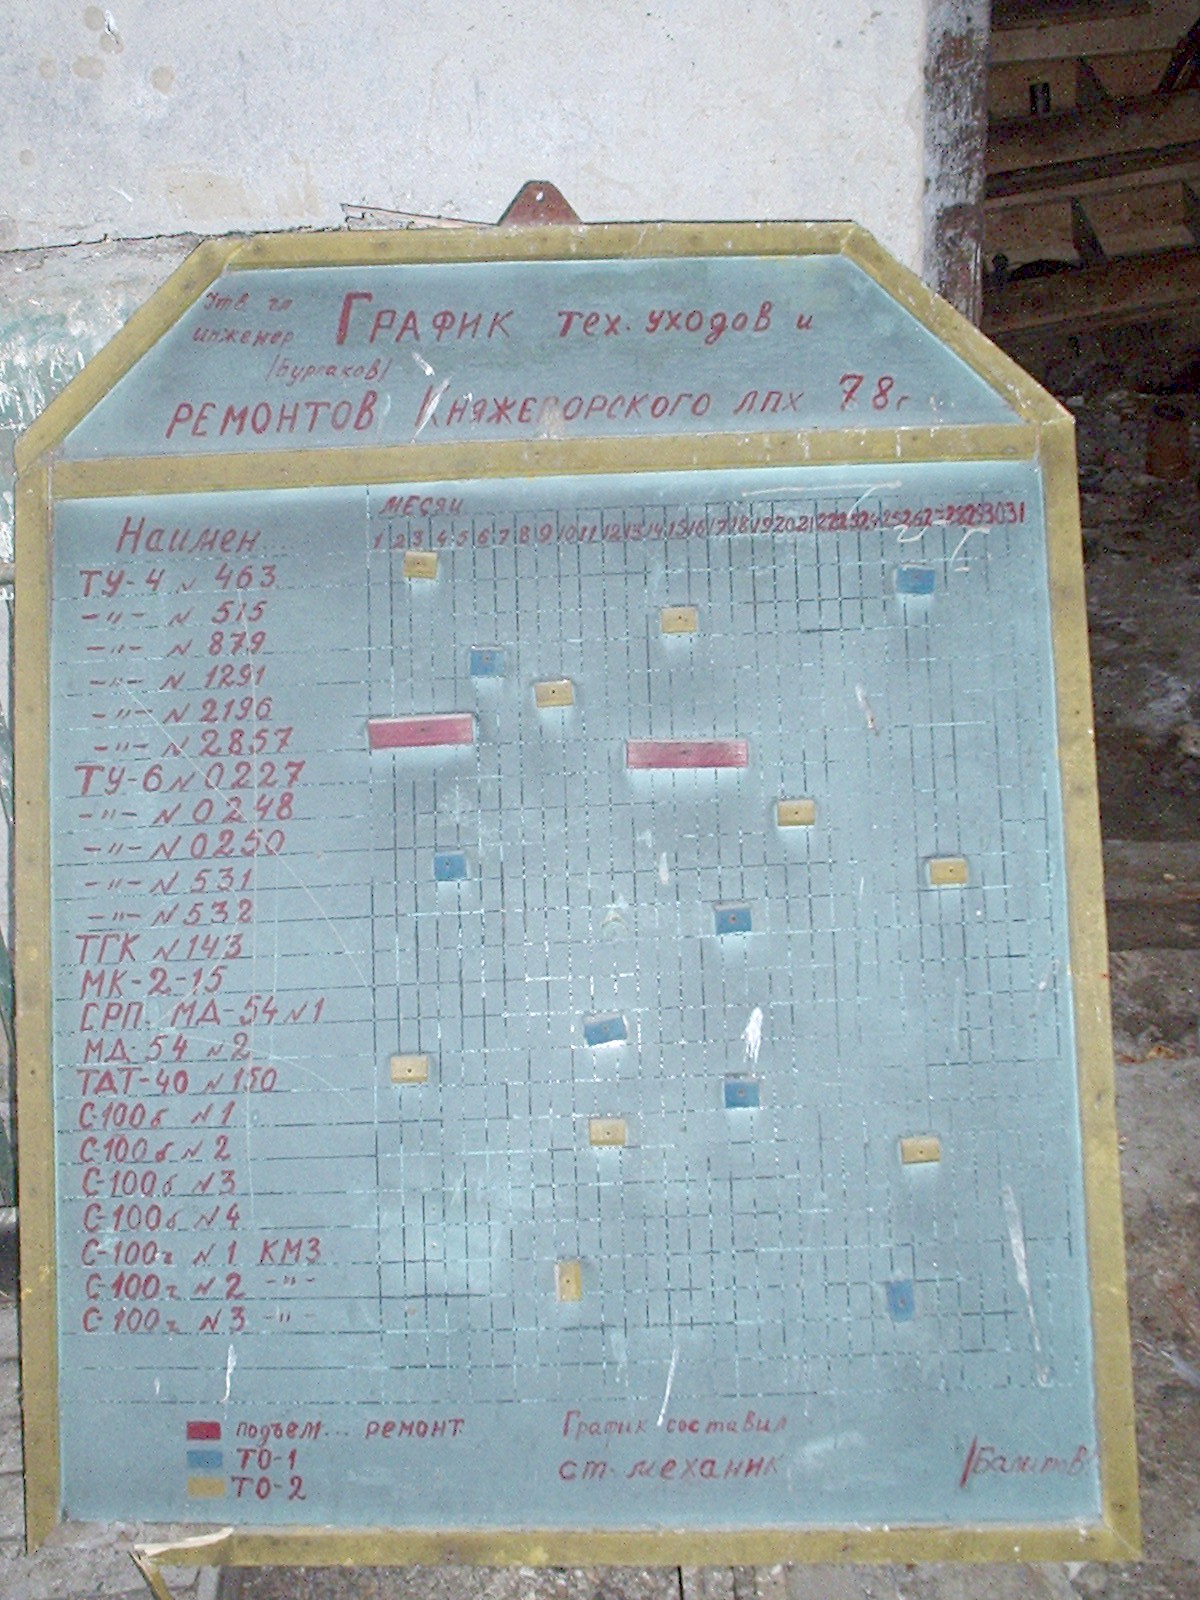 Утв гл
инженер
/Бурлаков/
График тех. уходов и
ремонтов Княжегорского лпх 78г
Наимен...
месяц
1 2 3 4 5 6 7 8 9 10 11 12 13 14 15 16 17 18 19 20 21 22 23 24 25 26 27 28 29 30 31
ТУ-4 N 463
-"- N 515
-"- N 879
-"- N 1291
-"- N 2196
-"- N 2857
ТУ-6 N 0227
-"- N 0248
-"- N 0250
-"- N 531
-"- N 532
ТГК N 143
МК-2-15
ГРП. МД-54 N1
МД-54 N2
ТДТ-40 N 150
С-100б N1
С-100б N 2
С-100б N3
С-100б N4
С-100г N1 КМЗ
С-100г N2 -"-
С-100г N3 -"-
подъем... ремонт
ТО-1
ТО-2
График составил
ст. механик /Балитов